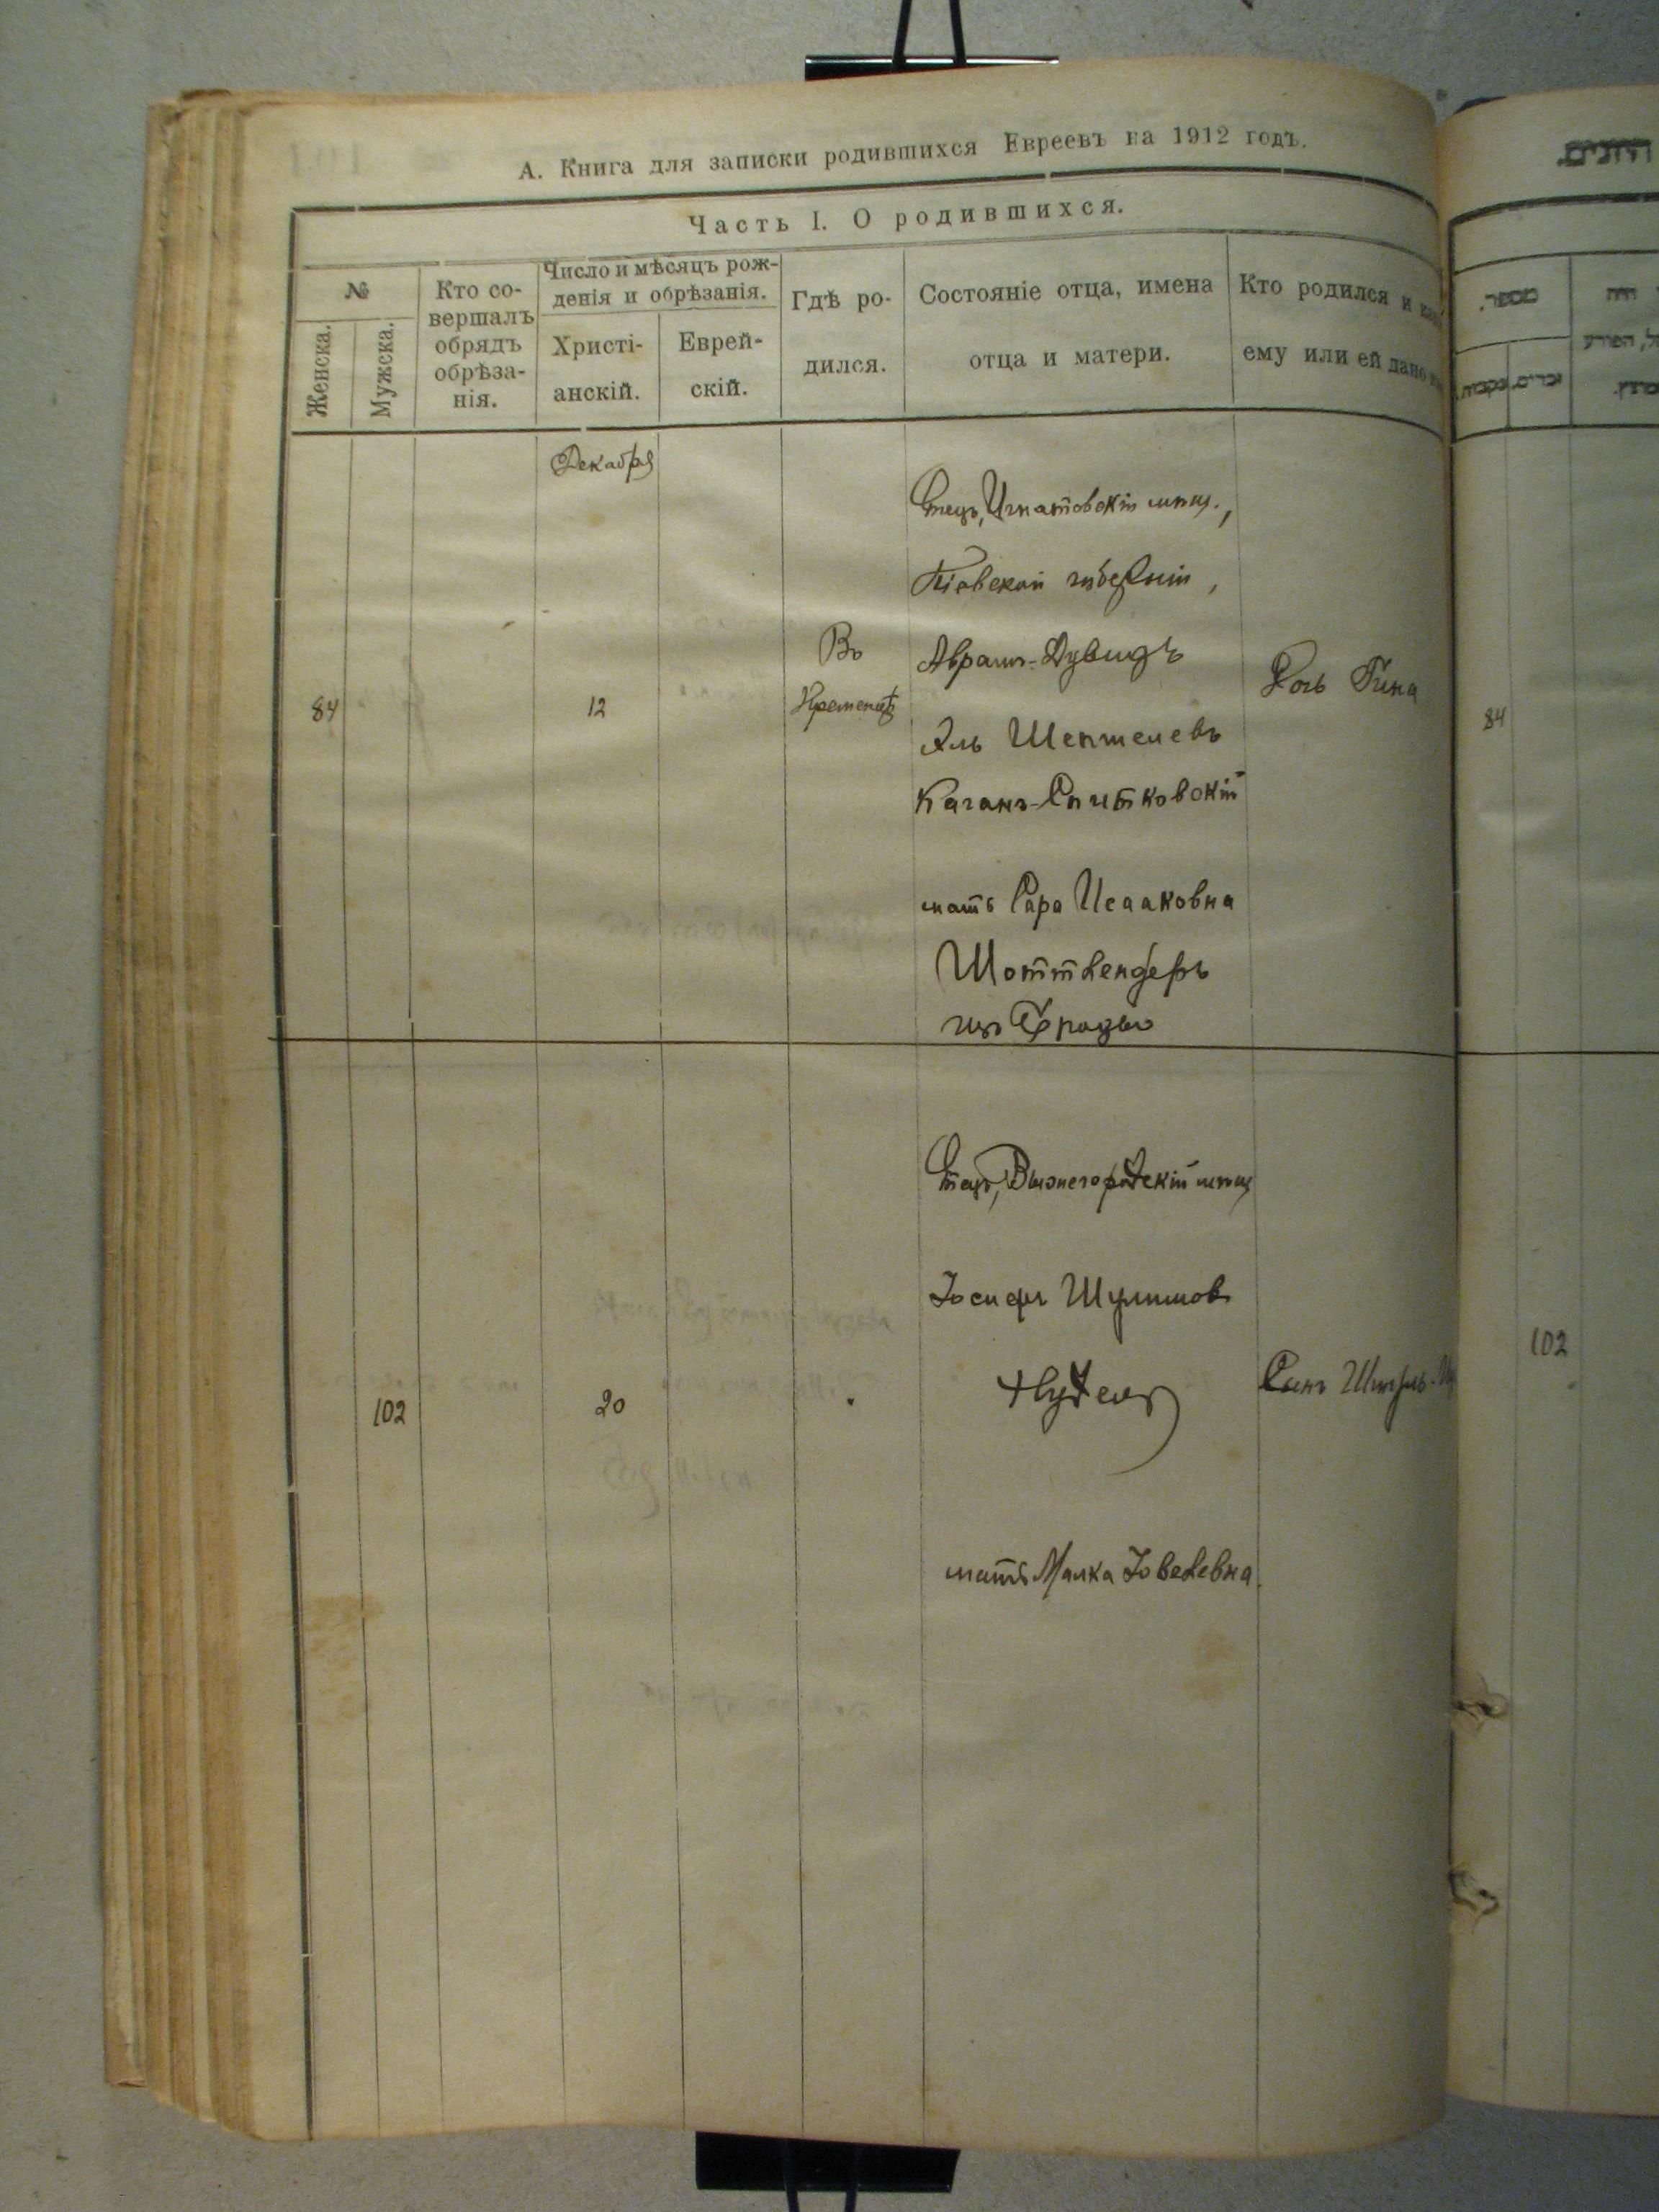 А. Книга для записки родившихся Евреевъ на 1912 годъ.
Часть I. О родившихся.
№
Женска.
Мужска.
Кто со-
вершалъ
обрядъ
обрѣза-
нія.
Число и мѣсяцъ рож-
денія и обрѣзанія.
Христі-
анскій.
Еврей-
скій.
Гдѣ ро-
дился.
Состояніе отца, имена
отца и матери.
Кто родился и
ему или ей дано
Декабря
84
12
Въ
Кременцѣ
Отецъ, Игнатовскій мѣщ.,
Кіевской губерніи,
Аврамъ-Дувидъ
Эль Шепшелевъ
Каганъ-Спитковскій
мать Сара Исааковна
Шоттлендеръ
изъ Броды
Дочь Гина
102
20
Отецъ, Вышегородскій мѣщ
Іосифъ Шулимов
Нудель
мать Малка Іовелевна
Сынъ
84
102